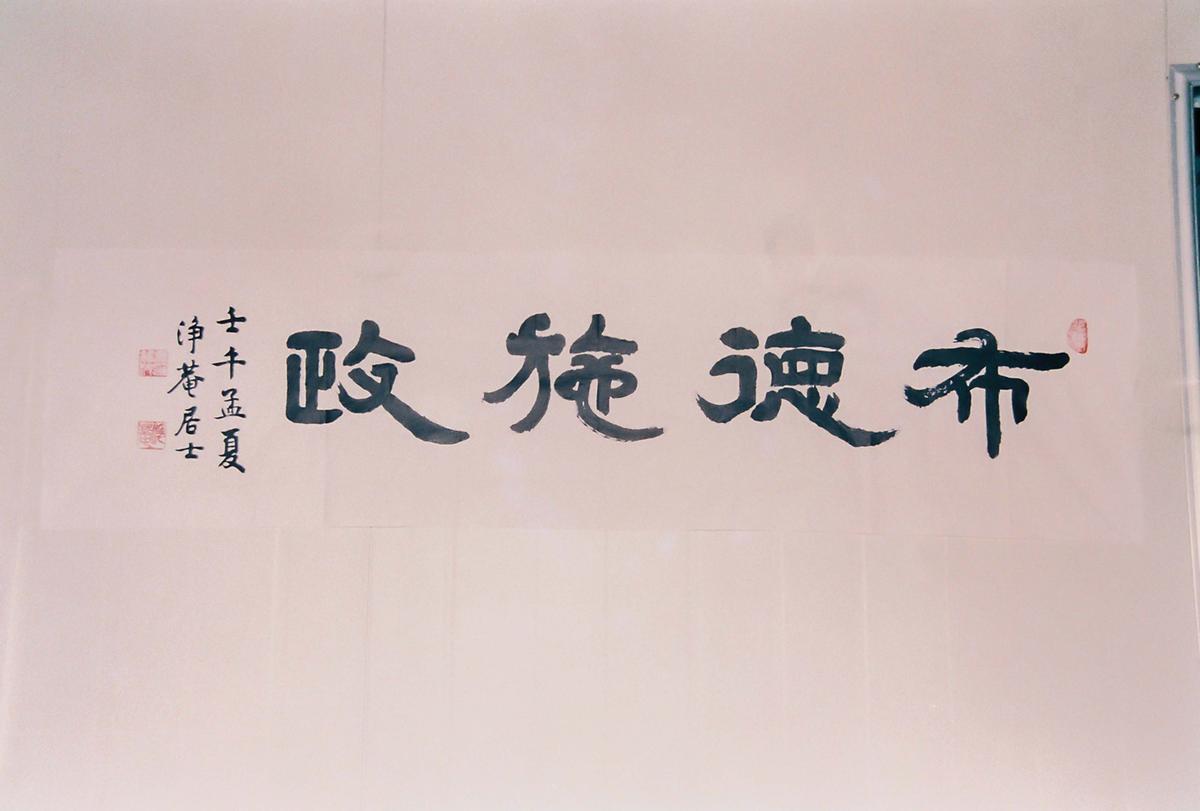 布德施政
壬午孟夏
淨菴居士